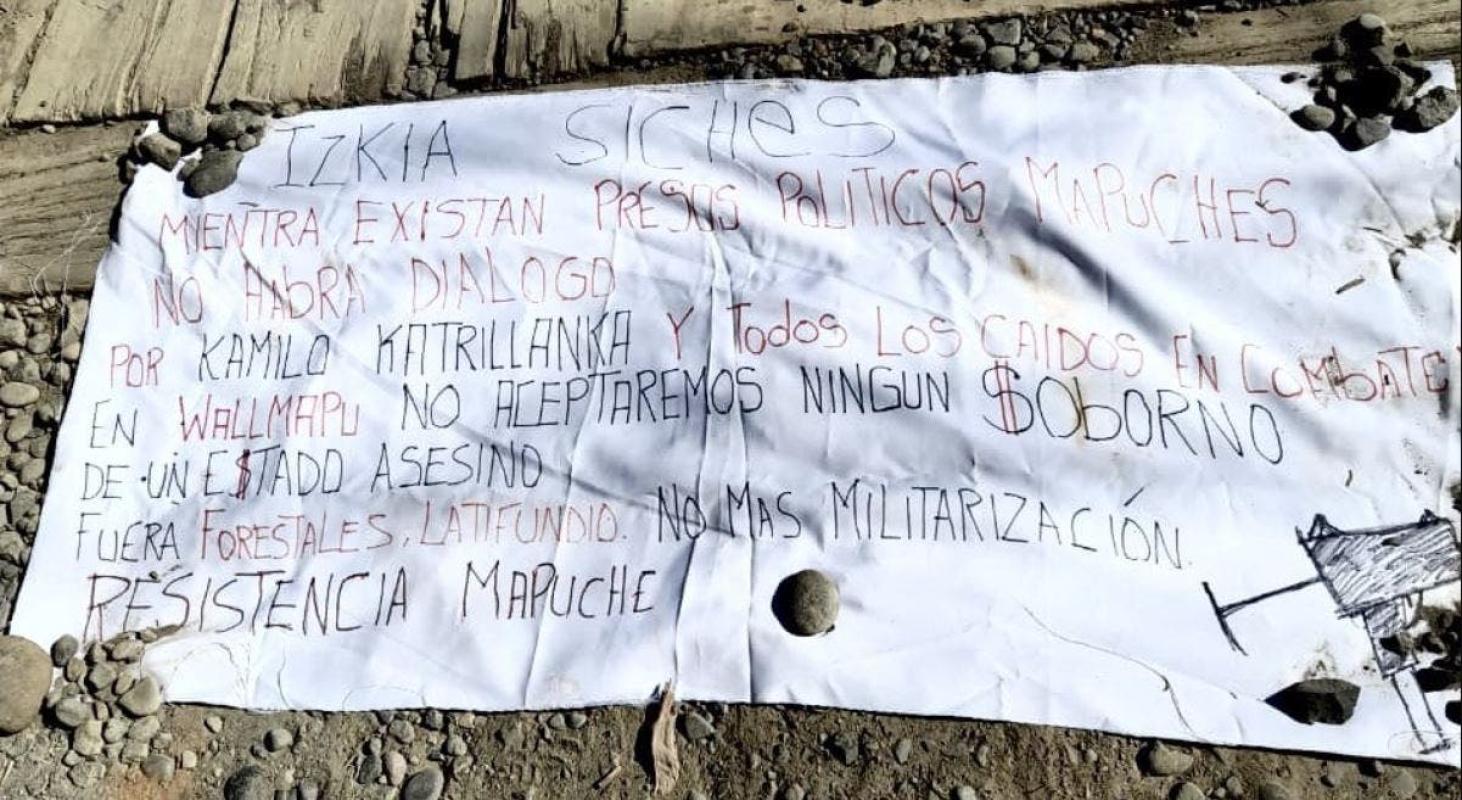 IZKIA SICHES
MIENTRA EXISTAN PRESOS POLITICOS MAPUCHES
NO HABRA DIALOGO
POR KAMILO KATRILLANKA Y TODOS LOS CAIDOS EN COMBATE
EN WALLMAPU NO ACEPTAREMOS NINGUN $OBORNO
DE UN E$TADO ASESINO
FUERA FORESTALES, LATIFUNDIO. NO MAS MILITARIZACIÓN.
RESISTENCIA MAPUCHE